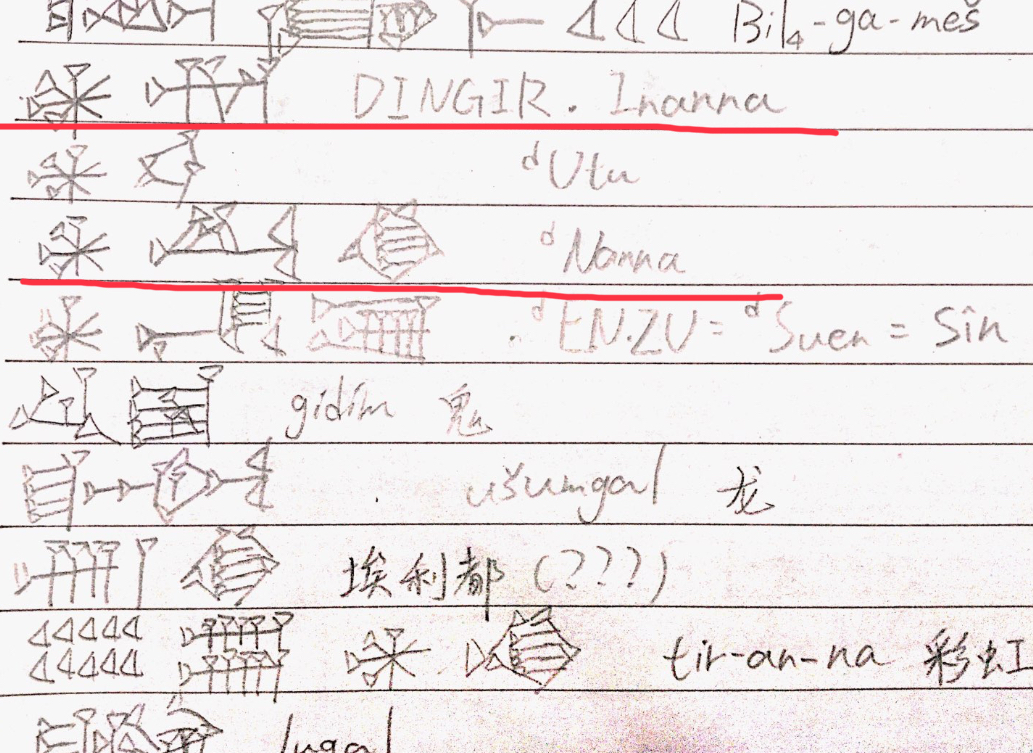 Bil₄-ga-meš
𒀭𒈹 DINGIR. Inanna
𒀭𒌓 ᵈUtu
𒀭𒋀𒆠 ᵈNanna
𒀭𒂗𒍪 ᵈEN.ZU = ᵈSuen = Sîn
gidim 鬼
ušumgal 龙
𒉣𒆠 埃利都 (???)
tir-an-na 彩虹
lugal